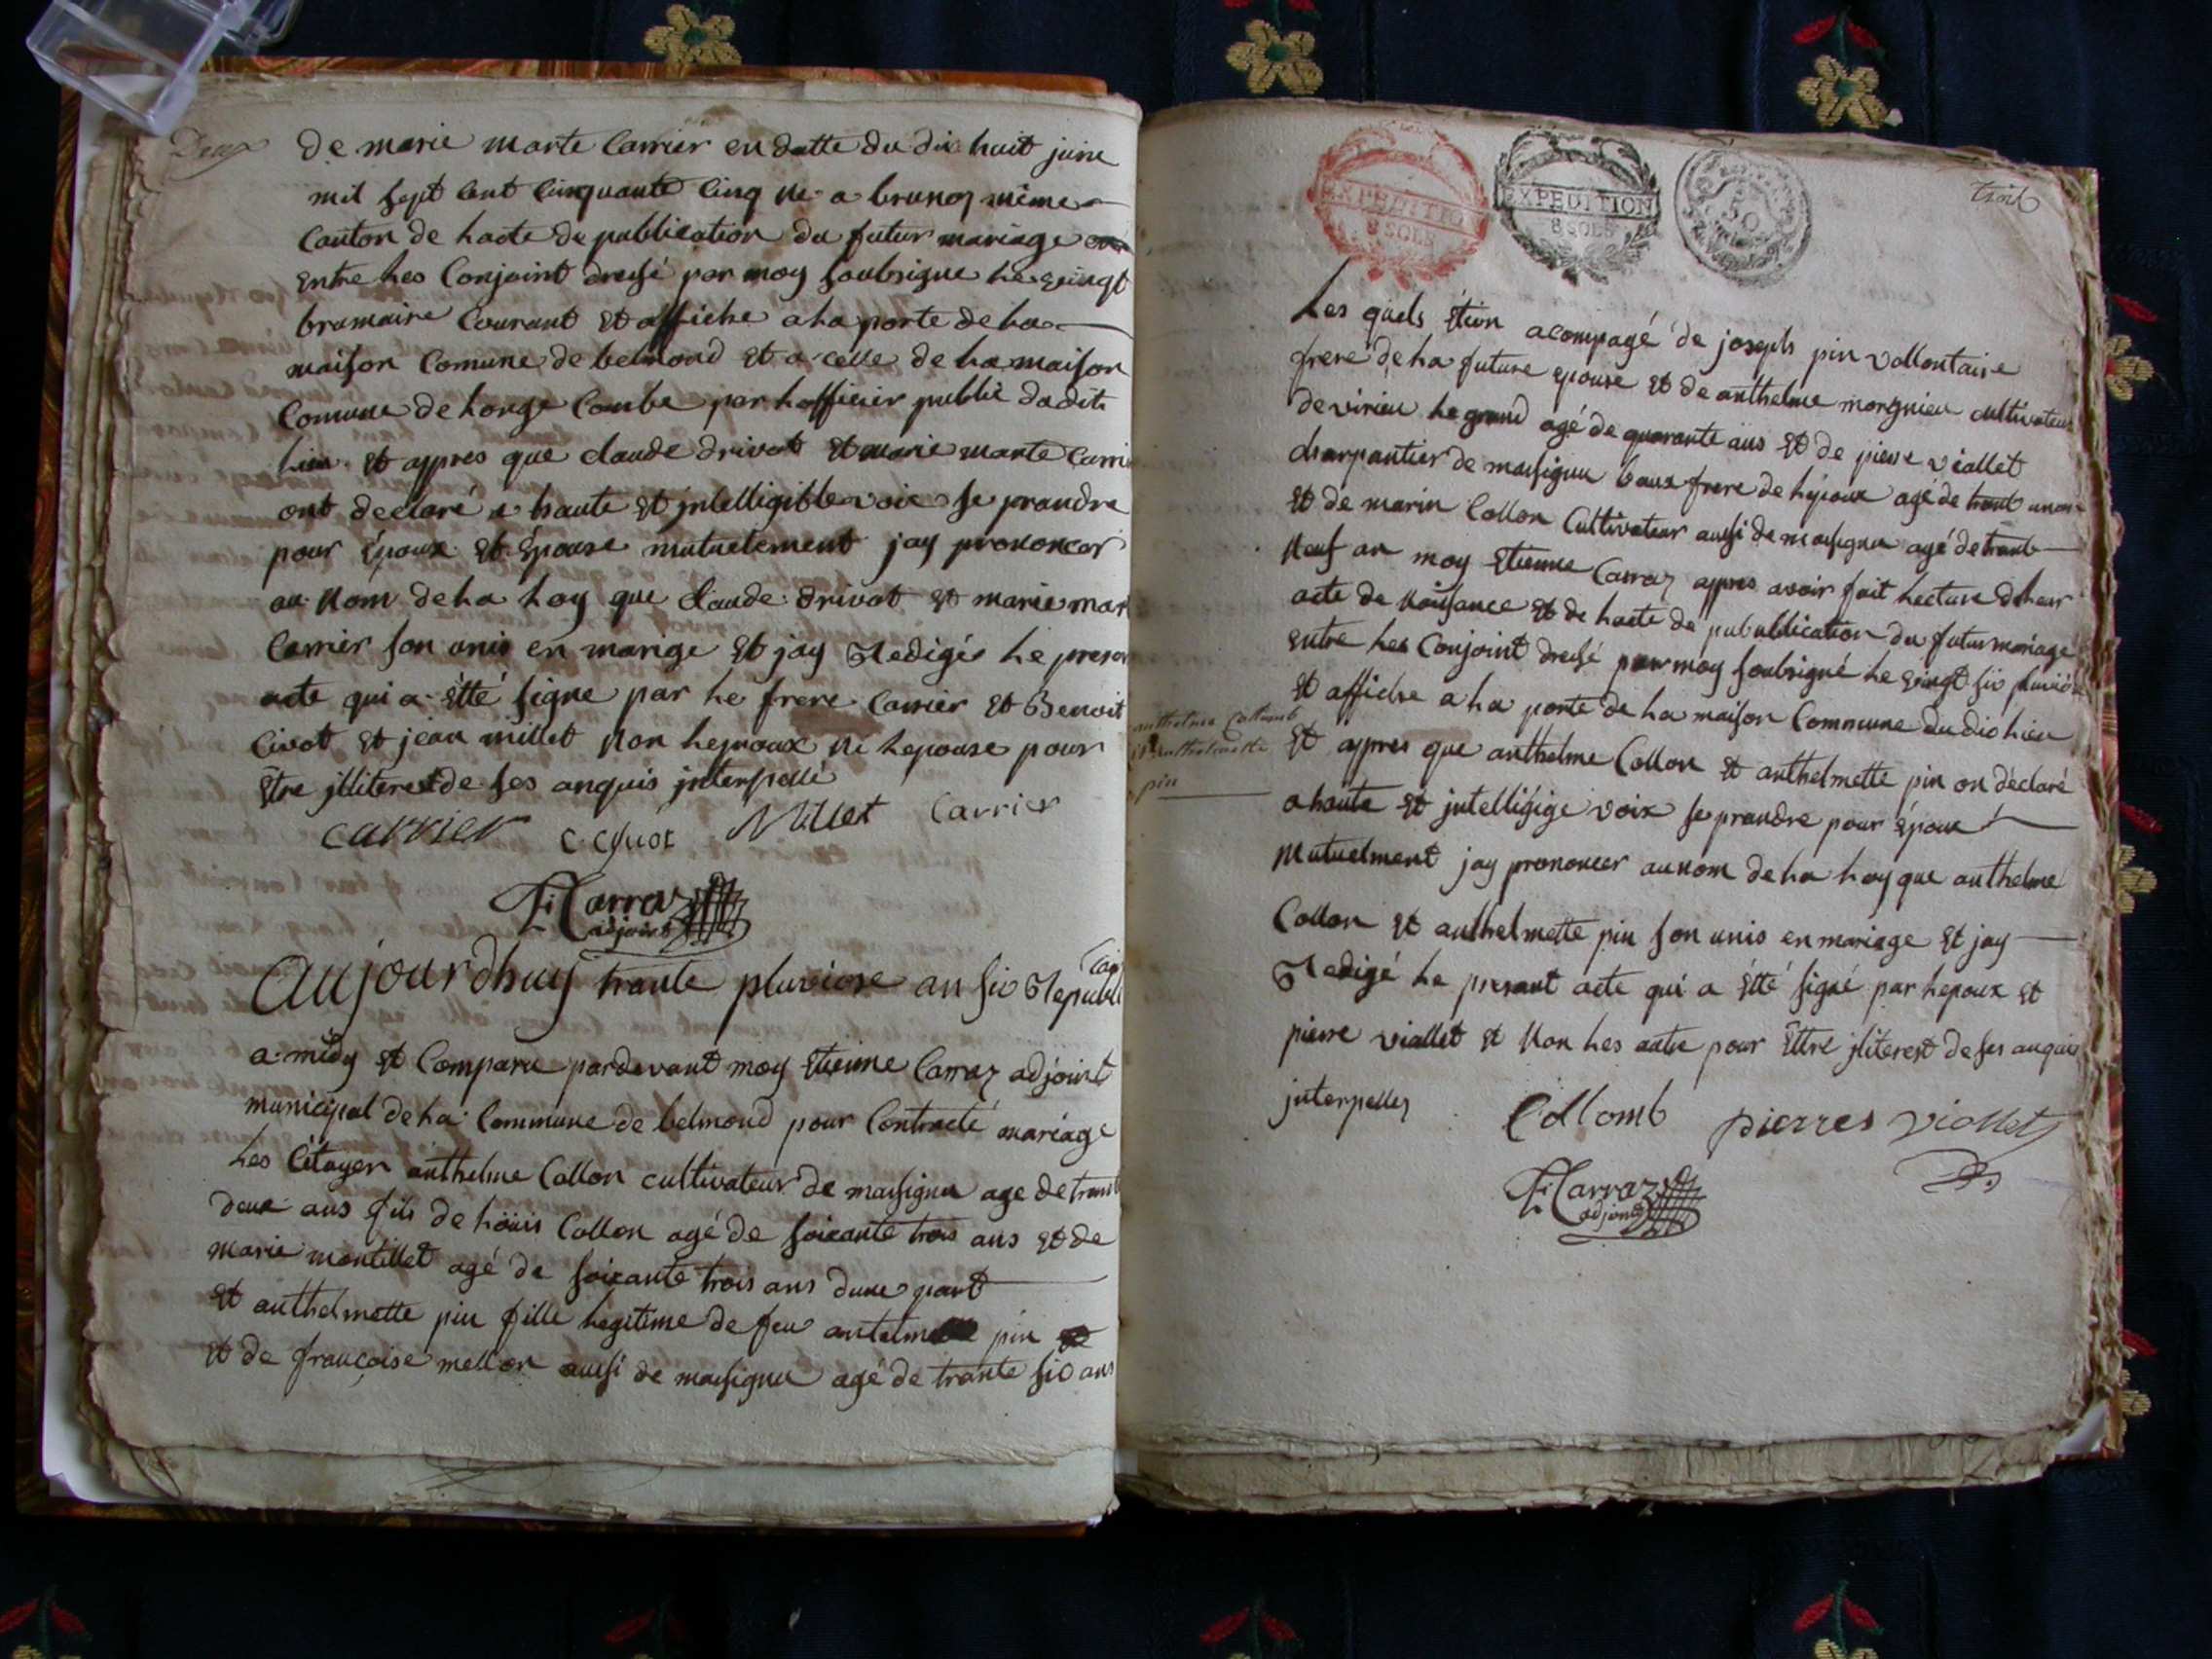 Deux
de marie marte Carrier en datte du dix huit juin
mil sept cent cinquante cinq né a brenoz même
Canton de hacte de publication du futur mariage
Entre hes Conjoint dressé par moy soubsigne he vaingt
brumaire Courant Et affiche a ha porte de ha
maison Comune de belmond Et a celle de ha maison
Comune de honge Combe par hofficier public dudit
hieu Et appres que claude drivot Et marie marte Carri
ont declaré a haute Et jntelligible voix se prandre
pour Époux Et Épouse mutuelement jay prononcer
au Nom de ha hoy que Claude drivot Et marie mar
Carrier son unis en marige Et jay Redigés he presen
acte qui a Étté signe par he frere Carrier Et Benoit
Civot Et jean millet Non hepoux ni hepouse pour
Etre jlliterest de ses anquis jnterpellé
carrier Millet Carrier
Carraz
adjoint
Aujourdhuy trante pluviose an six Republi
a midy Et Comparu pardevant moy Etienne Carraz adjoint
municipal de ha Commune de belmond pour Contracté mariage
hes Citoyen anthelme Collon cultivateur de massignieu age de trant
deux ans fils de hoüis Collon agé de soixante trois ans Et de
marie montillet agé de soixante trois ans dune part
Et anthelmette pin fille hegitime de feu antelme pin
Et de françoise mellon aussi de massignieu agé de trante six ans
EXPEDITION
8 SOLS
EXPEDITION
8 SOLS
50
trois
hes quels Étion acompagé de joseph pin vollontaire
frere de ha future epouse Et de anthelme morgnieu cultivateur
de virieu he grand agé de quarante ans Et de pierre viallet
charpantier de massignieu baux frere de hepoux agé de trant
Et de marin Collon Cultivateur aussi de massignieu agé de trant
Neuf an moy Etienne Carraz appres avoir fait hecture de heur
acte de Naissance Et de hacte de pubublication du futur mariage
Entre hes Conjoint dressé par moy soubsigné he vaingt six pluviose
Et affiche a ha porte de ha maison Commune dudic hieu
anthelme Collomb
et anthelmette
pin
Et appres que anthelme Collon Et anthelmette pin on déclaré
a haute Et jntelligige voix se prandre pour Époux
Mutuelment jay prononcer au nom de ha hoy que anthelme
Collon Et anthelmette pin son unis en mariage Et jay
Redigé he presant acte qui a Étté signé par hepoux Et
pierre viallet Et Non hes autre pour Ettre jliterest de ses anquis
jnterpelles
Collomb pierres viollet
Carraz
adjoint